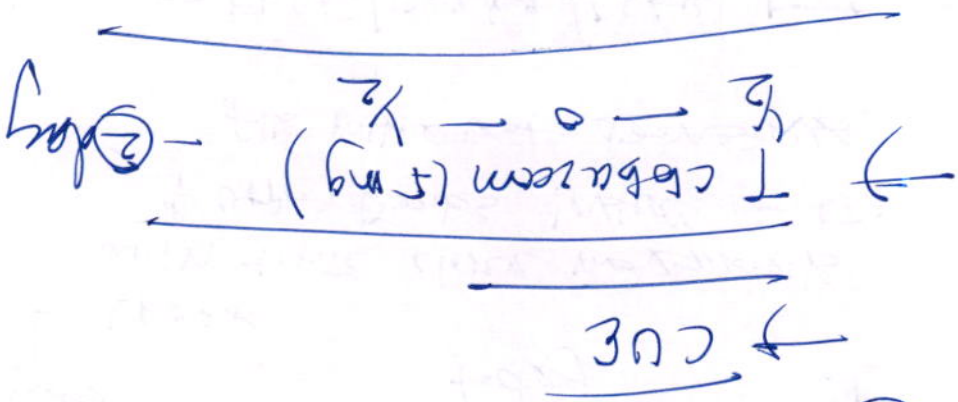 → CUE
→ T clobazam (5mg) - ② day
½ — 0 — ½